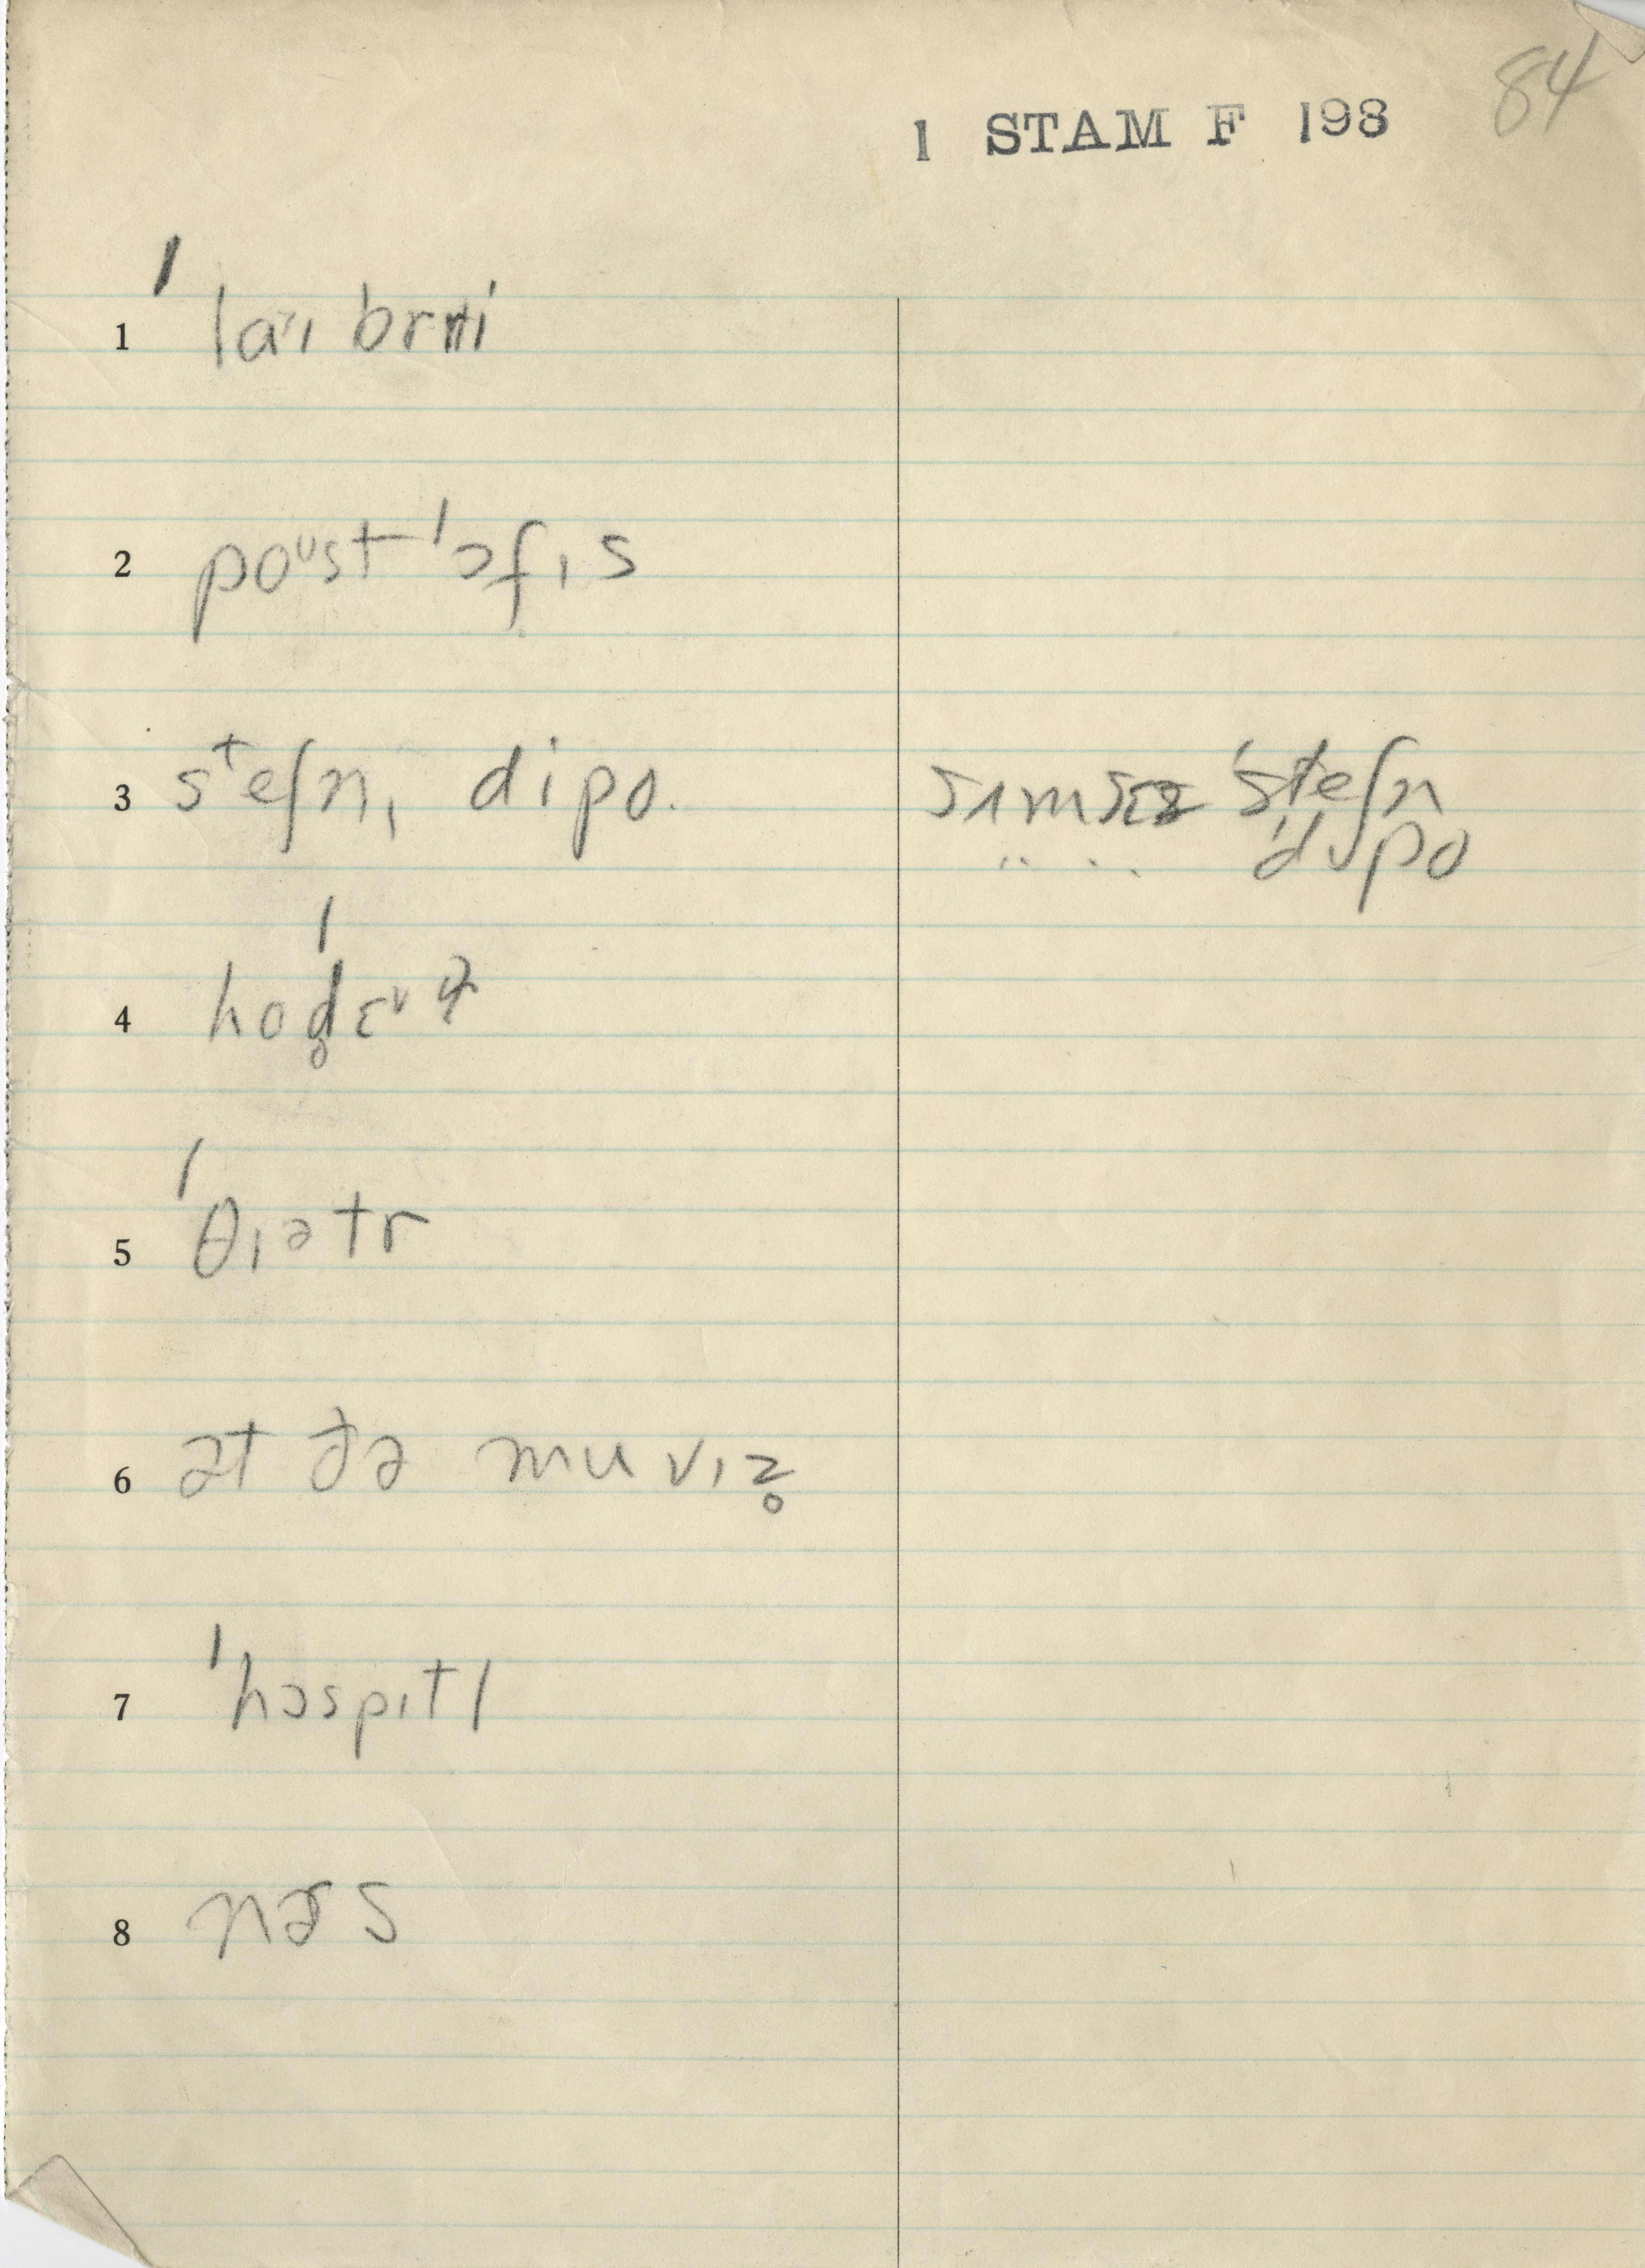 84
1 STAM F 198
1 ˈlaɪbrɛri
2 poᵘst ˈɔfɪs
3 steʃn, dipo. sɪmz ˈsteʃn
ˈdɪpo
4 hoˈd̥ɛᵛɫ
5 ˈθɪətr
6 ət ðə muvɪz̥
7 ˈhɔspɪtl
8 nɚs